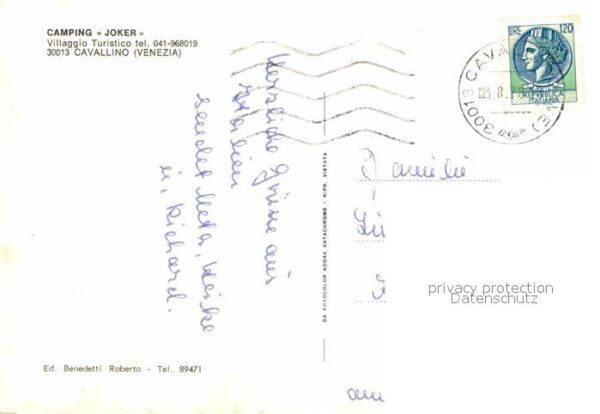 CAMPING « JOKER »
Villaggio Turistico tel. 041-968019
30013 CAVALLINO (VENEZIA)
LIRE 120
REPUBBLICA
ITALIANA
30013 CAVA
(VE)
Herzliche Grüsse aus
Italien
sendet Meta, Heike
u. Richard.
DA FOTOCOLOR KODAK EKTACHROME - RIPR. VIETATA
Familie
privacy protection
Datenschutz
Ed. Benedetti Roberto - Tel. 89471